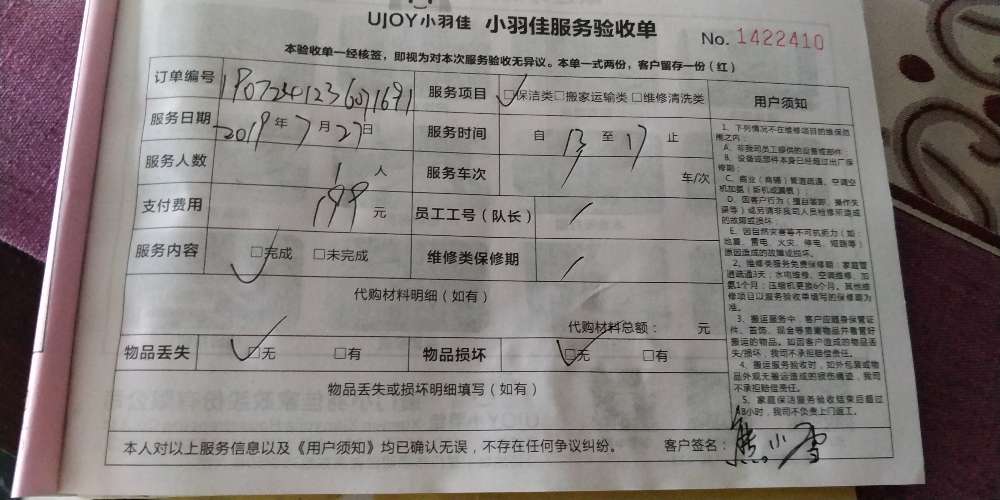 UJOY小羽佳 小羽佳服务验收单
No. 1422410
本验收单一经核签，即视为对本次服务验收无异议。本单一式两份，客户留存一份（红）
订单编号 服务项目 □保洁类□搬家运输类□维修清洗类
服务日期 2019年7月27日 服务时间 自 13 至 17 止
服务人数 1 人 服务车次 / 车/次
支付费用 199 元 员工工号（队长） /
服务内容 □完成 □未完成 维修类保修期 /
代购材料明细（如有）
代购材料总额： 元
物品丢失 □无 □有 物品损坏 □无 □有
物品丢失或损坏明细填写（如有）
本人对以上服务信息以及《用户须知》均已确认无误，不存在任何争议纠纷。 客户签名：熊小雪
用户须知
1、下列情况不在维修项目的维保范
围之内：
A、非我司员工提供的设备或部件；
B、设备或部件本身已经超过出厂保
修期；
C、商业（商铺）管道疏通、空调空
机加氨（新机或漏氨）；
D、因客户行为（擅自答卸、操作失
误等）或另请非我司人员检修所造成
的故障或损坏；
E、因自然灾害等不可抗力（如：
地震、雷电、火灾、停电、短路等）
原因造成的故障或损坏。
2、维修类服务免费保修期：家庭管
道疏通3天；水电维修、空调维修、加
氨1个月；压缩机更换6个月。其他维
修项目以服务验收单填写的保修期为
准。
3、搬运服务中，客户应随身保管证
件、首饰、现金等贵重物品并看管好
搬运的物品。如因客户造成的物品丢
失/损坏，我司不承担赔偿责任。
4、搬运服务验收时，如外包装或物
品外观无搬运造成的损伤痕迹，我司
不承担赔偿责任。
5、家庭保洁服务验收结束后超过
48小时，我司不负责上门返工。